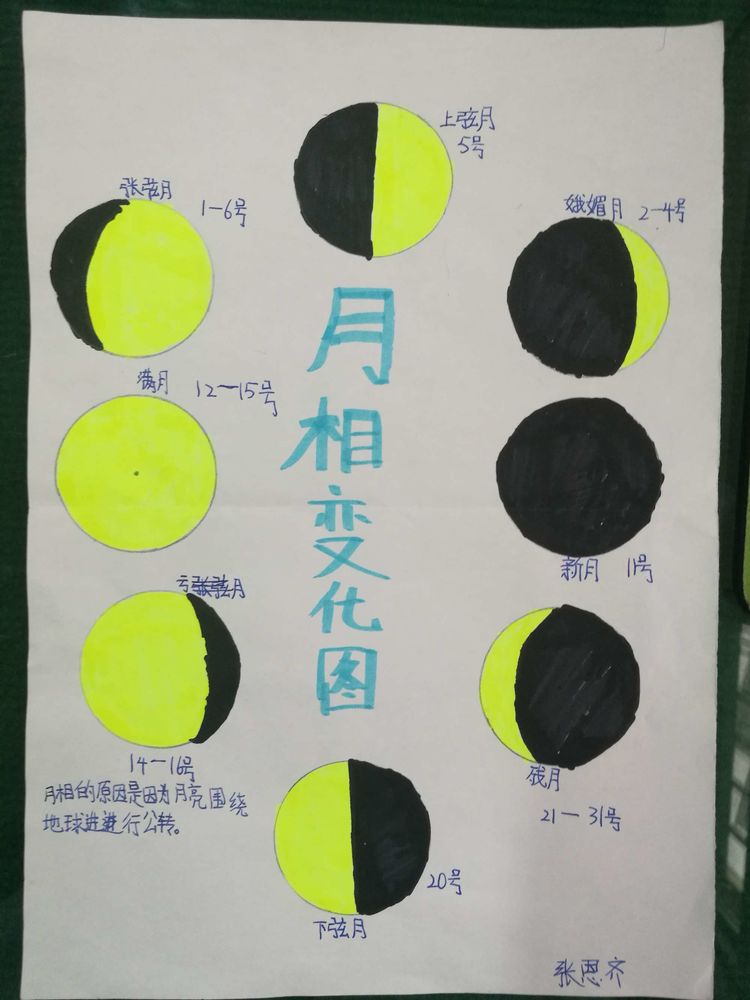 上弦月
5号
张弦月
1-6号
娥媚月 2-4号
月
相
变
化
图
满月 12-15号
新月 11号
亏张弦月
14-16号
月相的原因是因为月亮围绕
地球进行公转。
残月
21-31号
20号
下弦月
张恩齐